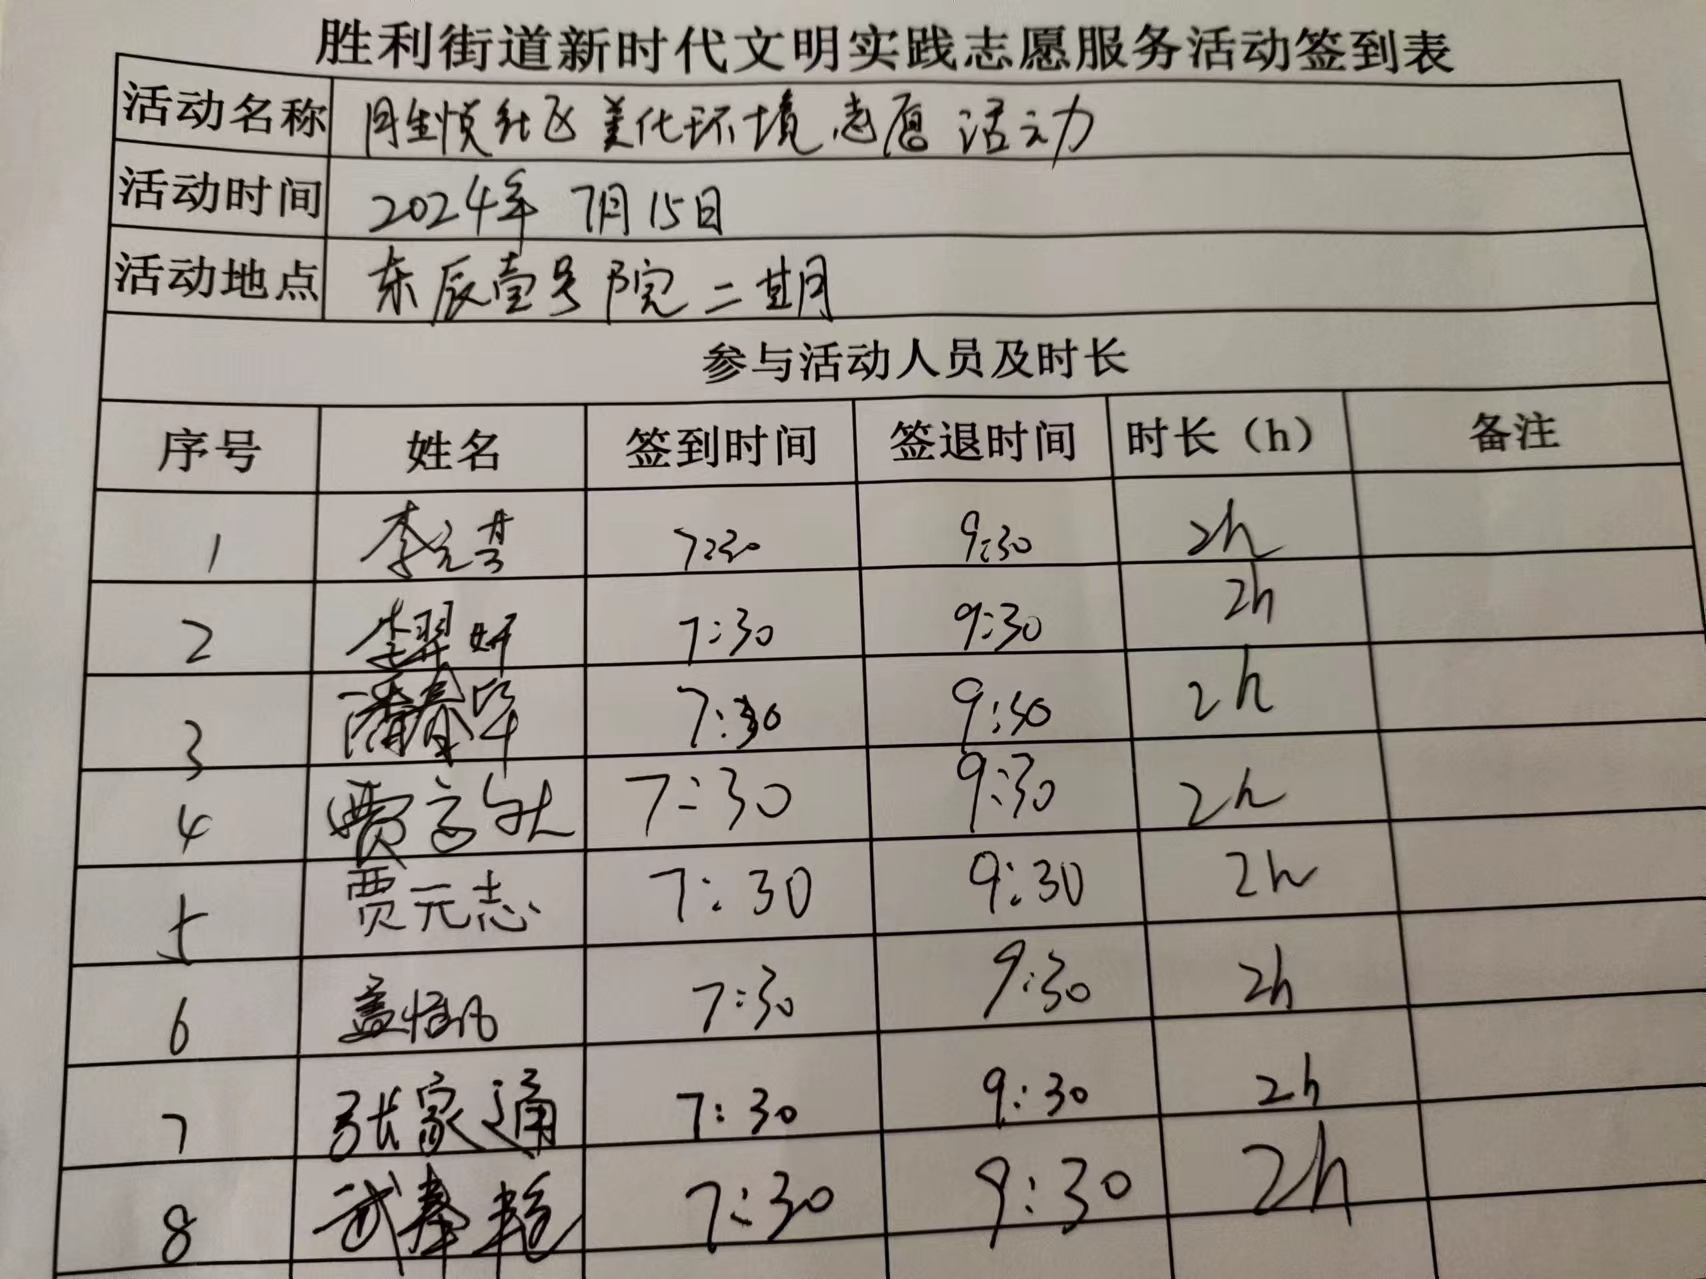 胜利街道新时代文明实践志愿服务活动签到表
活动名称 悦社区美化环境志愿活动
活动时间 2024年7月15日
活动地点 东辰壹号院二期
参与活动人员及时长
序号 姓名 签到时间 签退时间 时长（h） 备注
1 李元 7:30 9:30 2h
2 李羿妍 7:30 9:30 2h
3 潘春华 7:30 9:30 2h
4 贾 7:30 9:30 2h
5 贾元志 7:30 9:30 2h
6 孟恒凡 7:30 9:30 2h
7 张家通 7:30 9:30 2h
8 武春艳 7:30 9:30 2h